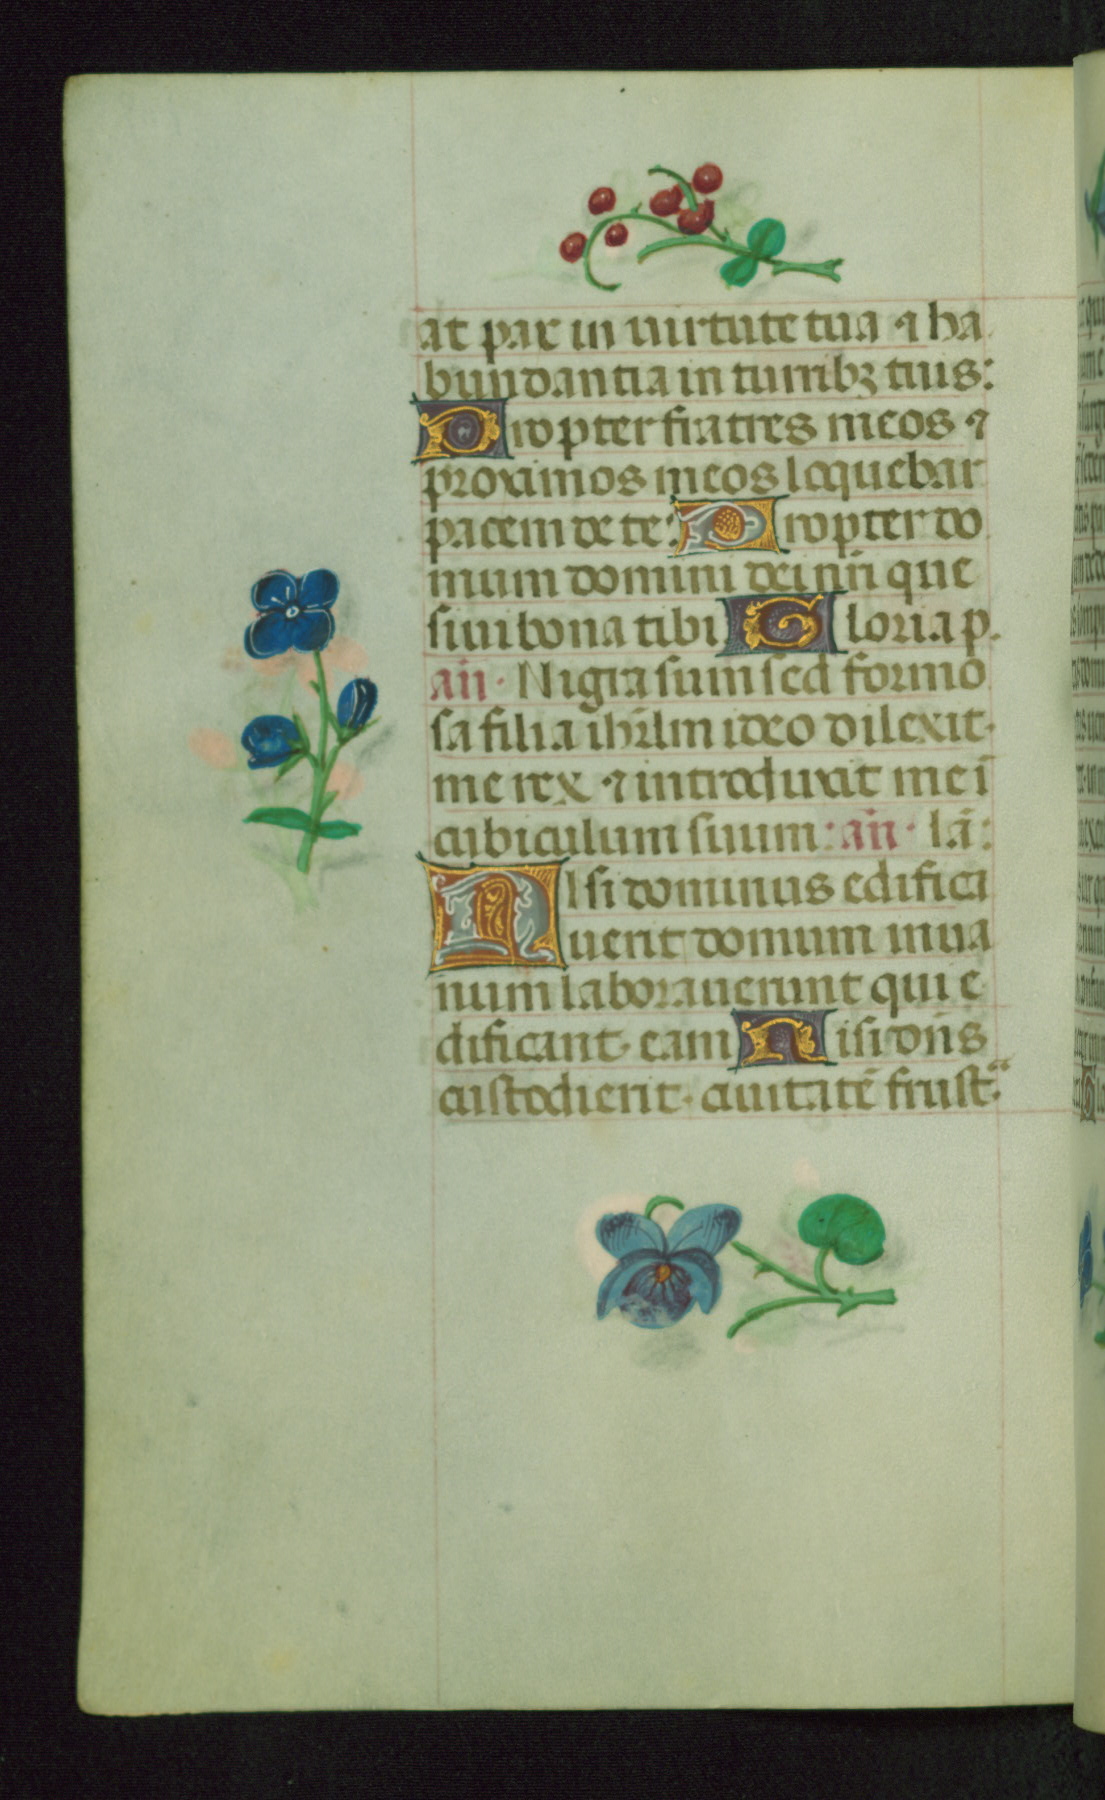 at pax in uirtute tua ⁊ ha
bundantia in turribꝫ tuis:
Propter fratres meos ⁊
proximos meos loquebar
pacem de te: Propter do
mum domini dei nr̄i que
siui bona tibi Gloria p.
an̄. Nigra sum sed formo
sa filia ihr̄lm ideo dilexit
me rex ⁊ introduxit me ī
cubiculum suum: an̄. la̅:
NIsi dominus edifica
uerit domum inua
num laborauerunt qui e
dificant eam Nisi dn̄s
custodierit ciuitatē frustᵃ